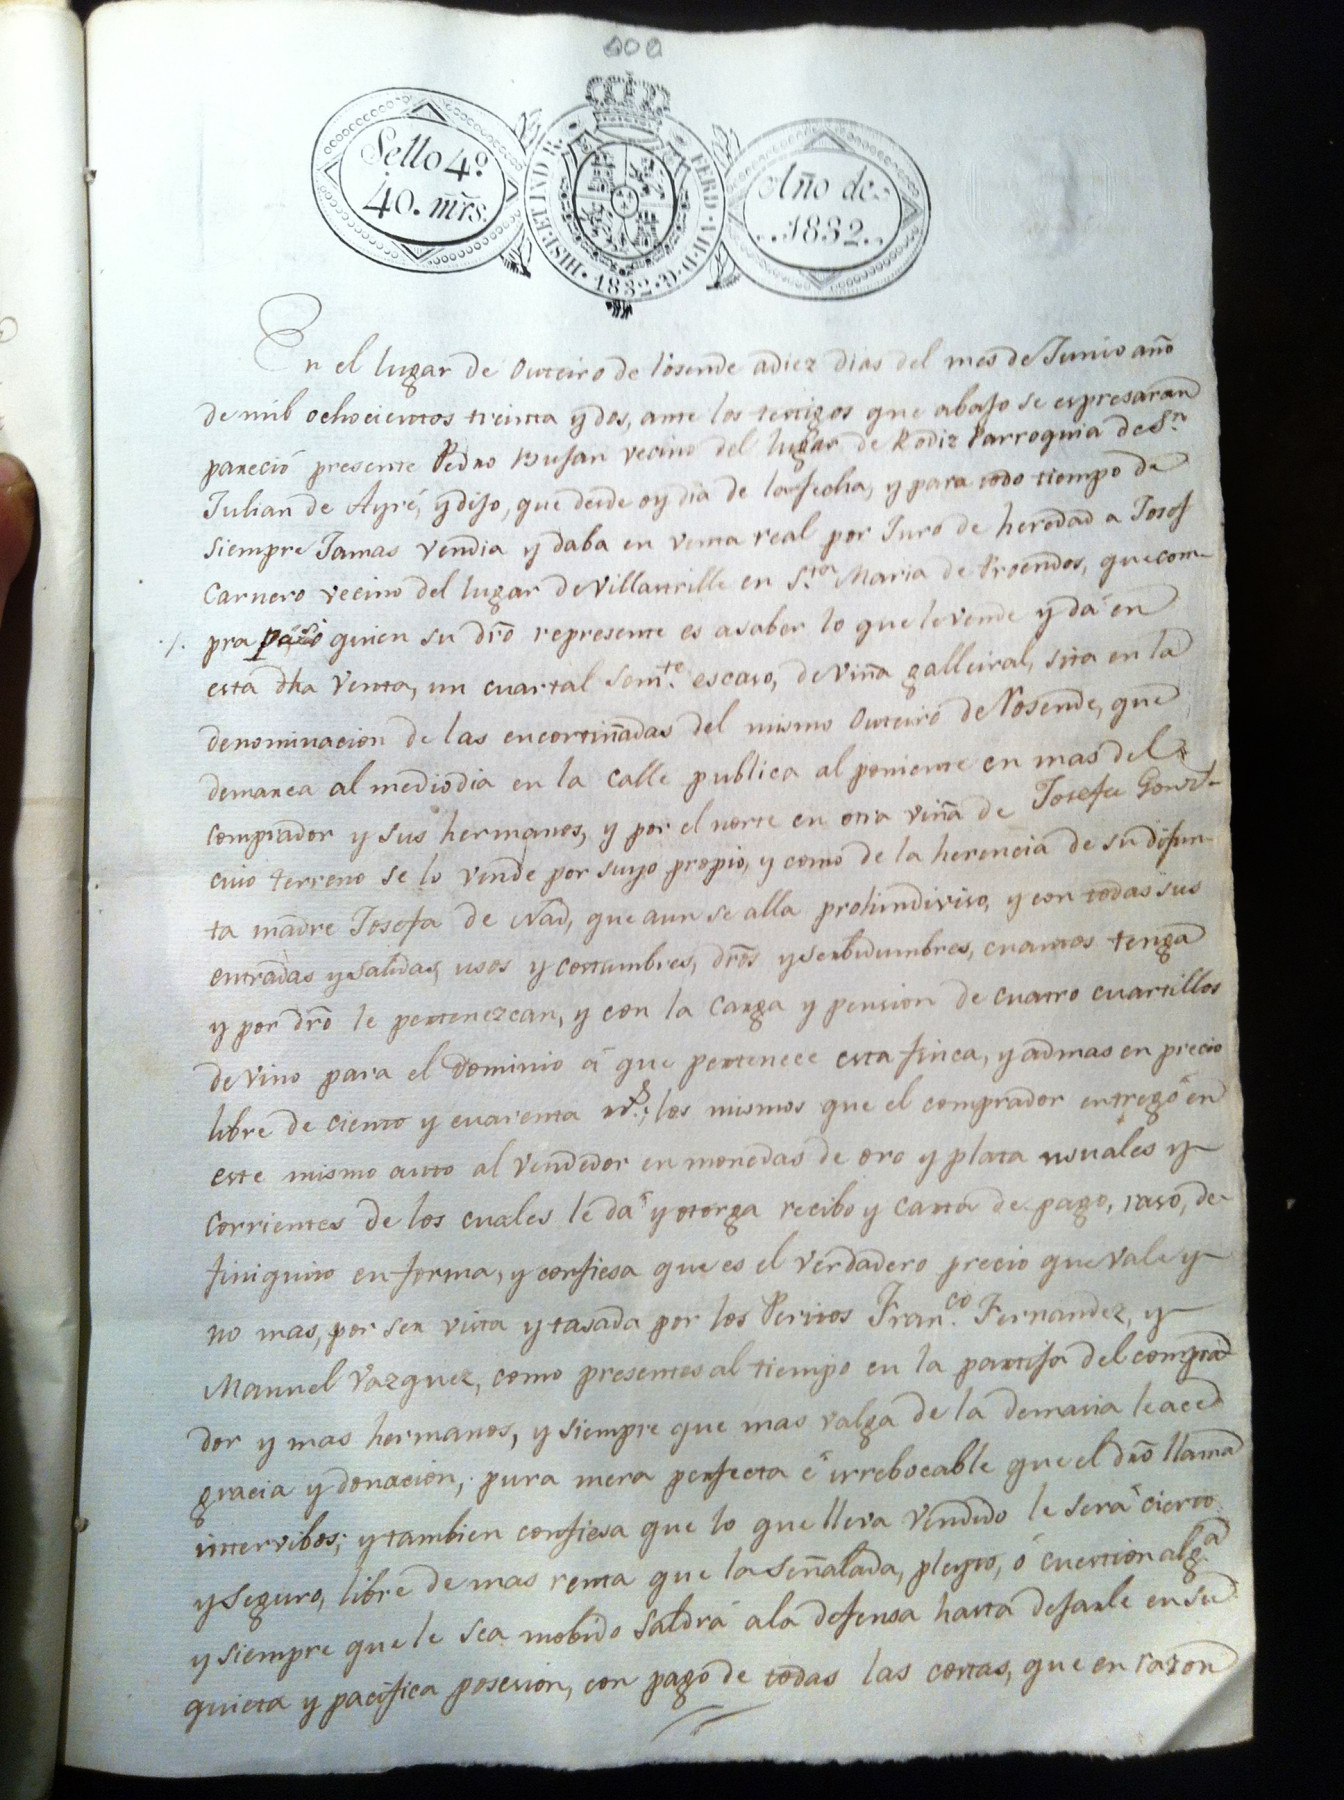 Sello 4º
40. mrs.
HISP. ET IND. R. FERD. VII. D. G. 1832
Año de
1832.
En el lugar de Outeiro de Iosende a diez dias del mes de Junio año
de mil ochocientos treinta y dos, ante los testigos que abajo se espresaran
pareció presente Pedro Bujan vecino del lugar de Rodiz Parroquia de Sn.
Julian de Ayré, y dijo, que desde oy dia de la fecha, y para todo tiempo de
siempre Jamas vendia y daba en venta real por Juro de heredad a Josef
Carnero vecino del lugar de Villaurille en Sta. Maria de Proendos, que com-
pra quien su dro represente es asaber lo que le vende y dá en
esta dha Venta, un cuartal semte. escaso, de viña galleiral, sita en la
denominacion de las encortiñadas del mismo Outeiro de Rosende, que
demarca al mediodia en la calle publica al poniente en mas del
comprador y sus hermanos, y por el norte en otra viña de Josefa Gonzl.
cuio terreno se lo vende por suyo propio, y como de la herencia de su difun-
ta madre Josefa de Nad, que aun se alla prohindiviso, y con todas sus
entradas y salidas, usos y costumbres, dros y serbidumbres, cuantos tenga
y por dro le pertenezcan, y con la carga y pension de cuatro cuartillos
de vino para el dominio á que pertenece esta finca, y admas en precio
libre de ciento y cuarenta rs., los mismos que el comprador entregó en
este mismo auto al vendedor en monedas de oro y plata usuales y
corrientes de los cuales le dá y otorga recibo y carta de pago, raso, de
finiquito en forma, y confiesa que es el verdadero precio que vale y
no mas, por ser vista y tasada por los Peritos Franco. Fernandez, y
Manuel Vazquez, como presentes al tiempo en la partija del compra
dor y mas hermanos, y siempre que mas valga de la demasia le ace
gracia y donacion, pura mera perfecta é irrebocable que el dro llama
intervibos; y tambien confiesa que lo que lleva vendido le será cierto
y seguro, libre de mas renta que la señalada, pleyto, ó cuestion alga
y siempre que le sea mobido saldrá a la defensa hasta dejarle en su
quieta y pacifica posesion, con pago de todas las costas, que en razon